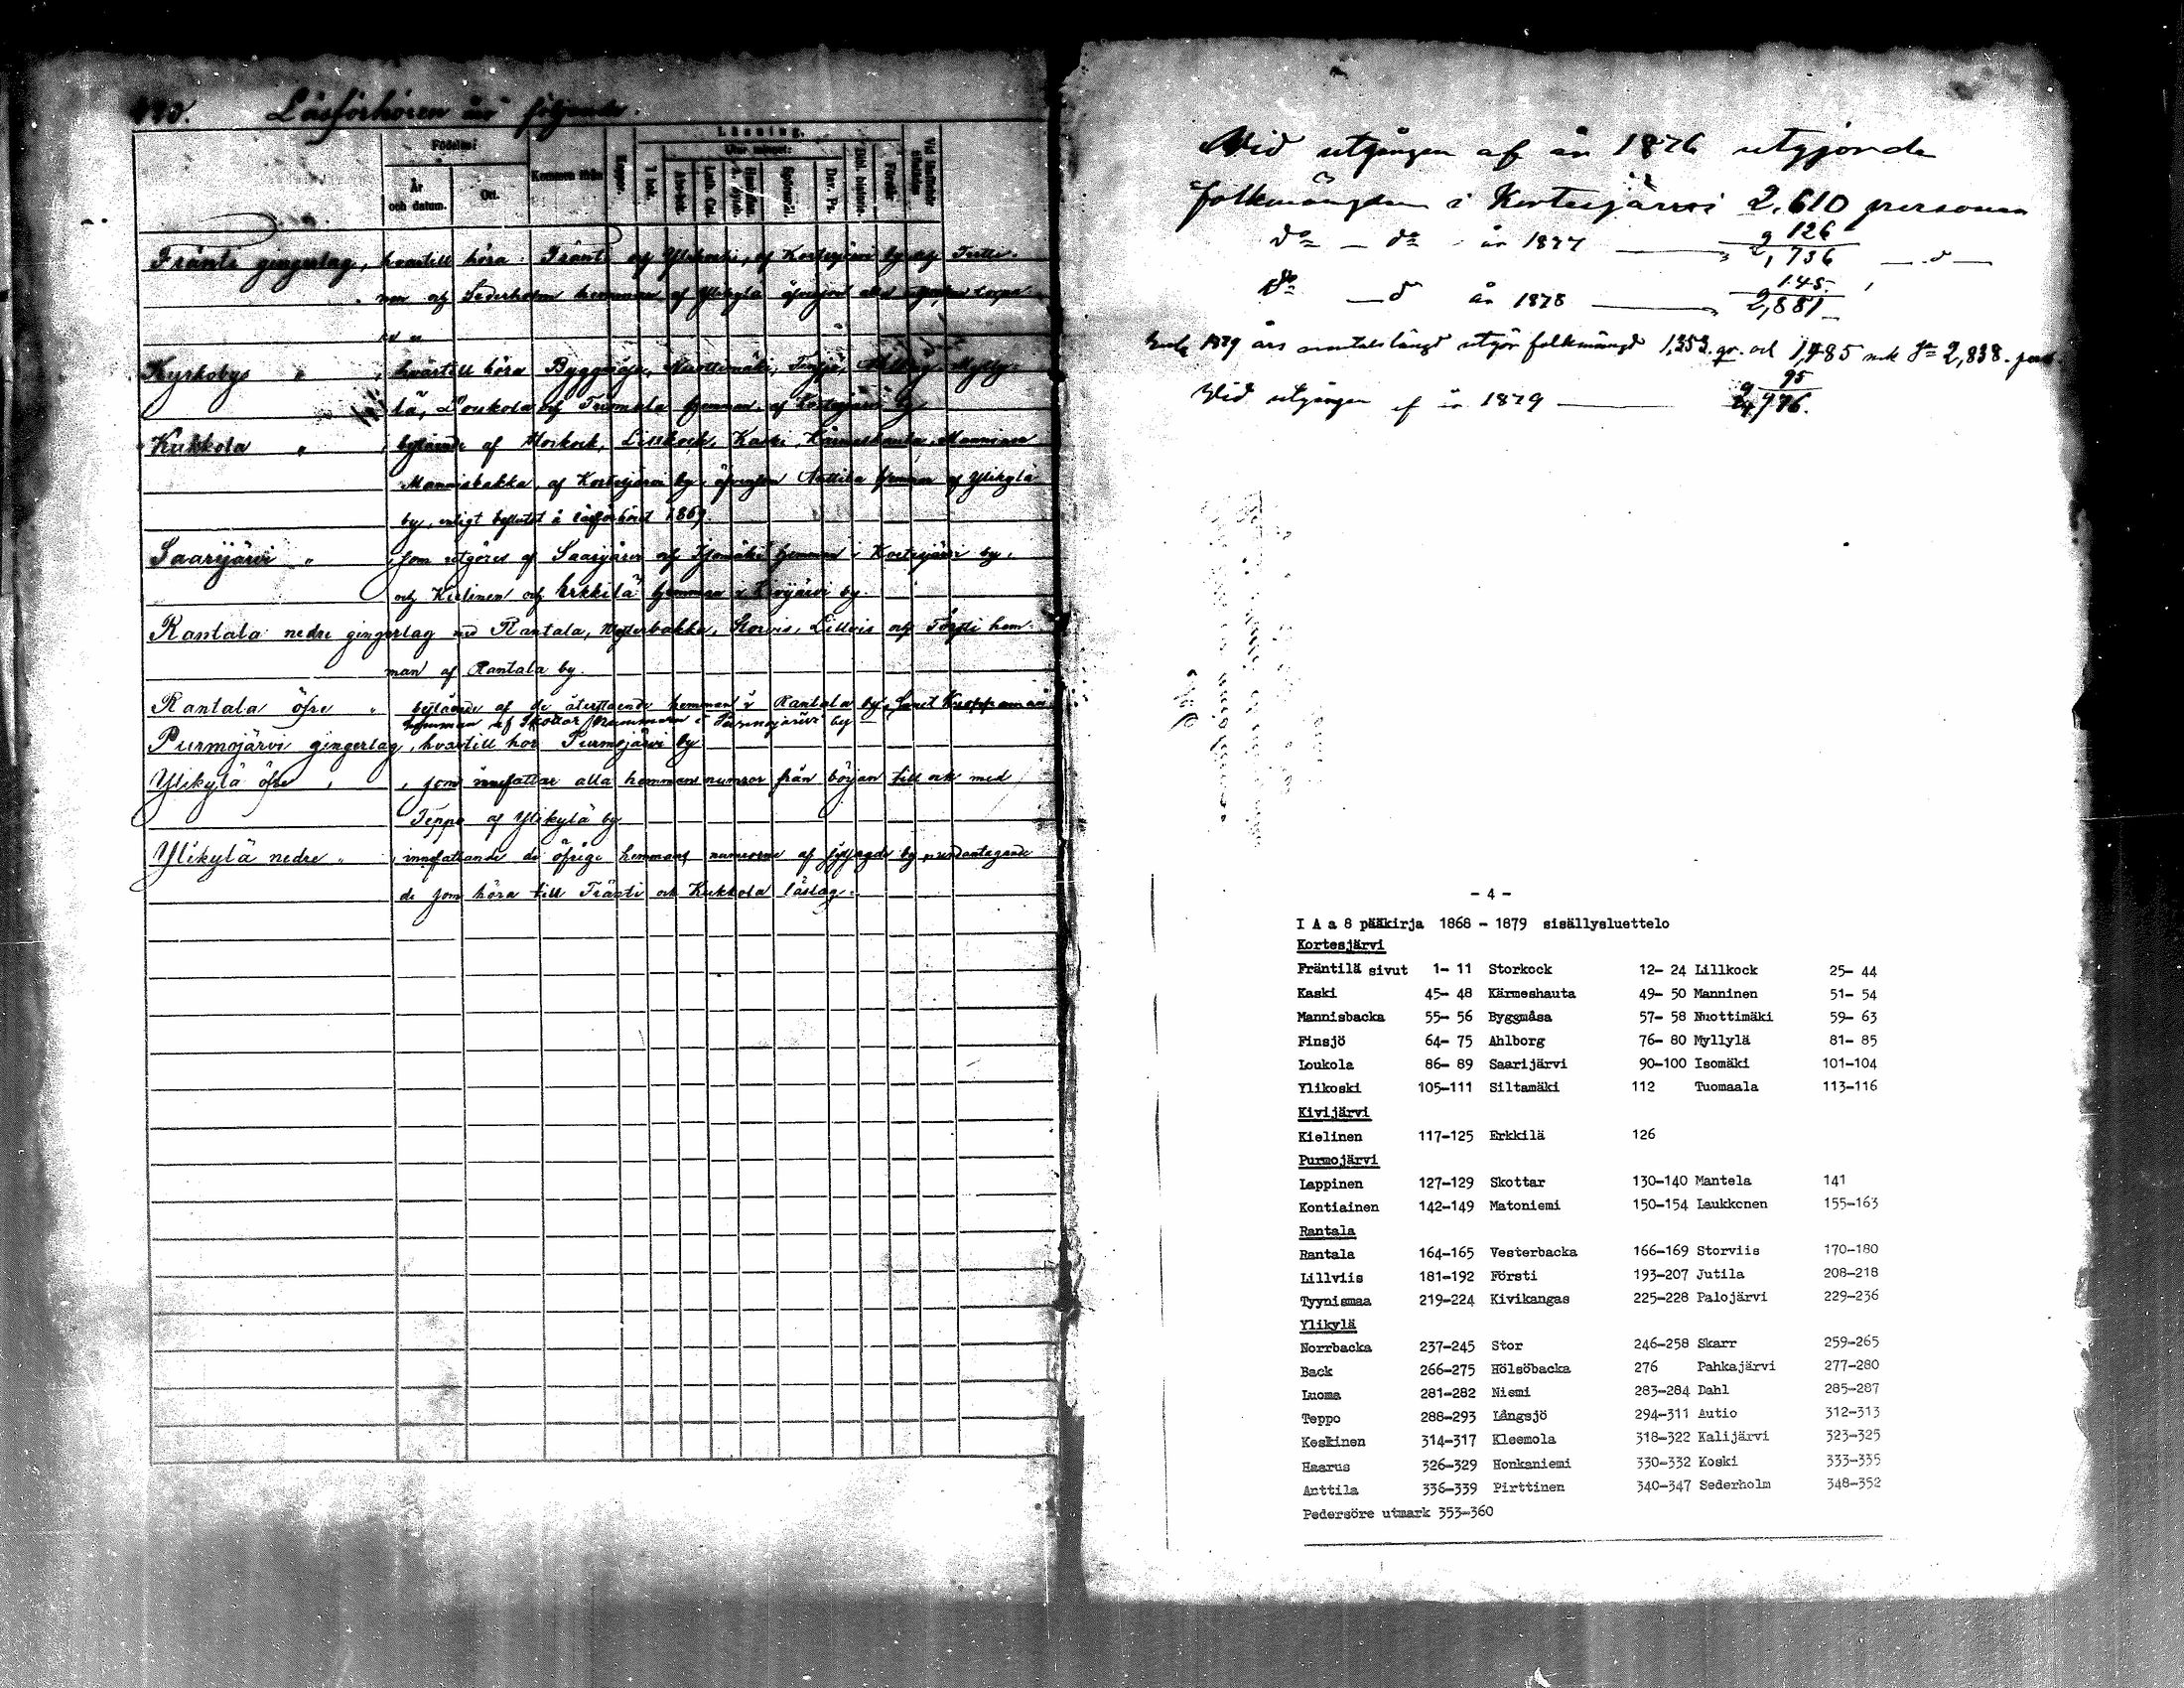 Läsförhören äro följande.
Läsning.
Födelse
Utur minnet:
År och datum.
Ort.
Kommen ifrån
Koppor.
I bok.
Abc-bok.
Luth. Cat.
Spörsmål.
Dav. Ps.
Förstår
Fränti gingerlag, hvartill höra: Fränti och Ylikoski, af Kortesjärvi by och
och Sederholm hemman af Ylikylä
Kyrkobys " hvartill höra Byggmäsa, Nuottimäki, Finsjö, Ahlborg, Mylly-
lä, Loukola och Tuomala hemman af Kortesjärvi by
Kukkola " bestående af Storkock, Lillkock, Kaski, Kärmeshauta, Manninen
Mannisbakka, af Kortesjärvi by, äfvensom Anttila hemman af Ylikylä
by, enligt beslutet å läsförhöret 1869.
Saarijärvi " som utgöres af Saarijärvi och Isomäki hemman i Kortesjärvi by,
och Kielinen och Erkkilä hemman i Kivijärvi by.
Rantala nedre gingerlag med Rantala, Westerbakka, Storvis, Lillvis och Försti hem-
man af Rantala by.
Rantala öfre " bestående af de återstående hemman i Rantala by, samt
hemman af Skottar i Purmojärvi by
Purmojärvi gingerlag, hvartill hör Purmojärvi by
Ylikylä öfre " , som innefattar alla hemmans numror från början till och med
Teppo af Ylikylä by
Ylikylä nedre " innefattande de öfrige hemmans numrorne af sistsagde by undantagande
de som höra till Fränti och Kukkola läslag.
Vid utgången af år 1876 utgjorde
folkmängden i Kortesjärvi 2,610 personer
126
do — do år 1877 — 2,736 — d —
145.
do — d år 1878 — 2,881
Enligt 1879 års mantalslängd utgör folkmängd 1,353 qv. och 1,485 mk Sa 2,838. pers
95
Vid utgången af år 1879 — 2,976.
- 4 -
I A a 8 pääkirja 1868 - 1879 sisällysluettelo
Kortesjärvi
Fräntilä sivut 1- 11 Storkock 12- 24 Lillkock 25- 44
Kaski 45- 48 Kärmeshauta 49- 50 Manninen 51- 54
Mannisbacka 55- 56 Byggmåsa 57- 58 Nuottimäki 59- 63
Finsjö 64- 75 Ahlborg 76- 80 Myllylä 81- 85
Loukola 86- 89 Saarijärvi 90-100 Isomäki 101-104
Ylikoski 105-111 Siltamäki 112 Tuomaala 113-116
Kivijärvi
Kielinen 117-125 Erkkilä 126
Purmojärvi
Lappinen 127-129 Skottar 130-140 Mantela 141
Kontiainen 142-149 Matoniemi 150-154 Laukkonen 155-163
Rantala
Rantala 164-165 Vesterbacka 166-169 Storviis 170-180
Lillviis 181-192 Försti 193-207 Jutila 208-218
Tyynismaa 219-224 Kivikangas 225-228 Palojärvi 229-236
Ylikylä
Norrbacka 237-245 Stor 246-258 Skarr 259-265
Back 266-275 Hölsöbacka 276 Pahkajärvi 277-280
Luoma 281-282 Niemi 283-284 Dahl 285-287
Teppo 288-293 Långsjö 294-311 Autio 312-313
Keskinen 314-317 Kleemola 318-322 Kalijärvi 323-325
Haarus 326-329 Honkaniemi 330-332 Koski 333-335
Anttila 336-339 Pirttinen 340-347 Sederholm 348-352
Pedersöre utmark 353-360